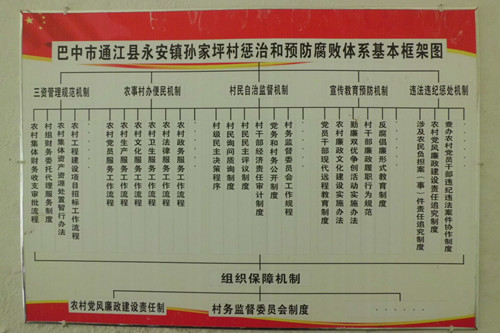 巴中市通江县永安镇孙家坪村惩治和预防腐败体系基本框架图
三资管理规范机制
农事村办便民机制
村民自治监督机制
宣传教育预防机制
违法违纪惩处机制
农村集体财务收支审批流程
村组财务委托代理服务制度
农村集体资产资源处置暂行办法
农村工程建设项目招标工作流程
农村党员服务工作流程
农村生产服务工作流程
农村文化服务工作流程
农村卫生服务工作流程
农村法律服务工作流程
农村政务服务工作流程
村级民主决策程序
村民询问质询制度
村民民主评议制度
村干部经济责任审计制度
党务和村务公开制度
村务监督委员会工作规程
党员干部现代远程教育制度
农村廉政文化建设实施办法
勤廉双优争创活动实施办法
村干部廉政履职行为规范
反腐倡廉形式教育制度
涉及农民负担案（事）件责任追究制度
农村党风廉政建设责任追究制度
查办农村党员干部违纪违法案件协作制度
组织保障机制
农村党风廉政建设责任制
村务监督委员会制度